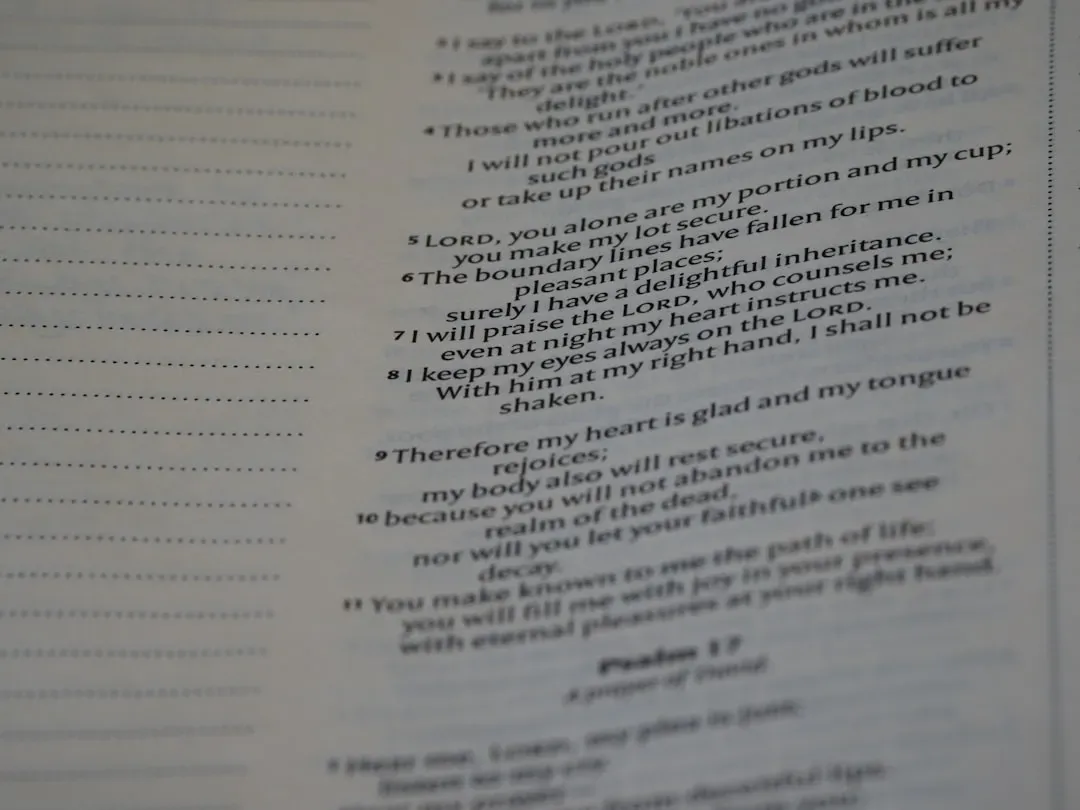 ² I say to the LORD, "You are
apart from you I have no good
³ I say of the holy people who are in the
"They are the noble ones in whom is all my
delight."
⁴ Those who run after other gods will suffer
more and more.
I will not pour out libations of blood to
such gods
or take up their names on my lips.
5 LORD, you alone are my portion and my cup;
you make my lot secure.
6 The boundary lines have fallen for me in
pleasant places;
surely I have a delightful inheritance.
7 I will praise the LORD, who counsels me;
even at night my heart instructs me.
8 I keep my eyes always on the LORD.
With him at my right hand, I shall not be
shaken.
9 Therefore my heart is glad and my tongue
rejoices;
my body also will rest secure,
10 because you will not abandon me to the
realm of the dead,
nor will you let your faithfulᵇ one see
decay.
11 You make known to me the path of life;
you will fill me with joy in your presence,
with eternal pleasures at your right hand.
Psalm 17
A prayer of David.
1 Hear me, LORD, my plea is just;
listen to my cry.